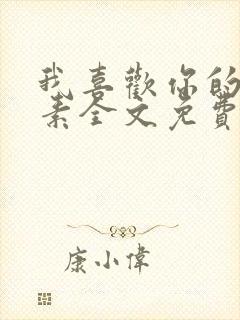 我喜歡你的
素全文免費
康小偉